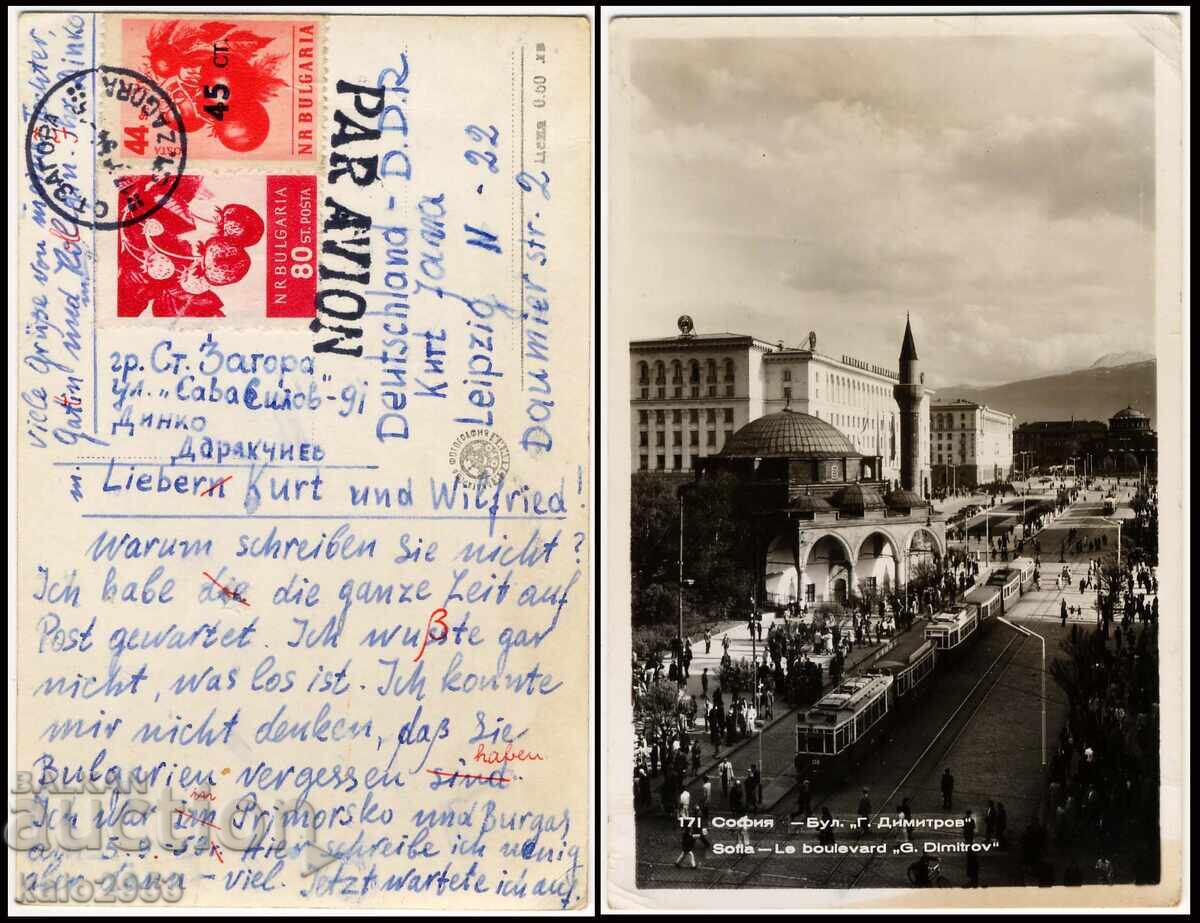 Viele Grüße von meiner Tochter,
Gattin und
Dinko
44 st
45 СТ.
POSTA
NR BULGARIA
NR BULGARIA
80 ST. POSTA
ZAGORA
PAR AVION
Deutschland - D.D.R
Kurt Jana
Leipzig N - 22
Daumier str. 2
Цена 0.50 лв
гр. Ст. Загора
ул. „Сава Силов"-91
Динко
Даракчиев
Liebern Kurt und Wilfried!
Warum schreiben Sie nicht?
Ich habe die die ganze Zeit auf
Post gewartet. Ich wußte gar
nicht, was los ist. Ich konnte
mir nicht denken, daß Sie
haben
Bulgarien vergessen sind.
in
Ich war im Primorsko und Burgas
Hier schreibe ich wenig
aber dann - viel. Jetzt wartete ich auf.
BALKAN
AUCTION
kalo2988
171 София — Бул. „Г. Димитров"
Sofia — Le boulevard „G. Dimitrov"